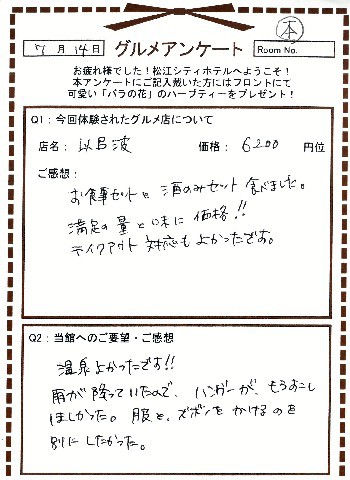 本
7月14日 グルメアンケート Room No.
お疲れ様でした！松江シティホテルへようこそ！
本アンケートにご記入戴いた方にはフロントにて
可愛い「バラの花」のハーブティーをプレゼント！
Q1：今回体験されたグルメ店について
店名： 以呂波 価格： 6200 円位
ご感想：
お食事セットと酒のみセット食べました。
満足の量と味に価格!!
テイクアウト対応もよかったです。
Q2：当館へのご要望・ご感想
温泉よかったです!!
雨が降っていたので、ハンガーが、もう少し
ほしかった。服と、ズボンをかけるのを
別にしたかった。